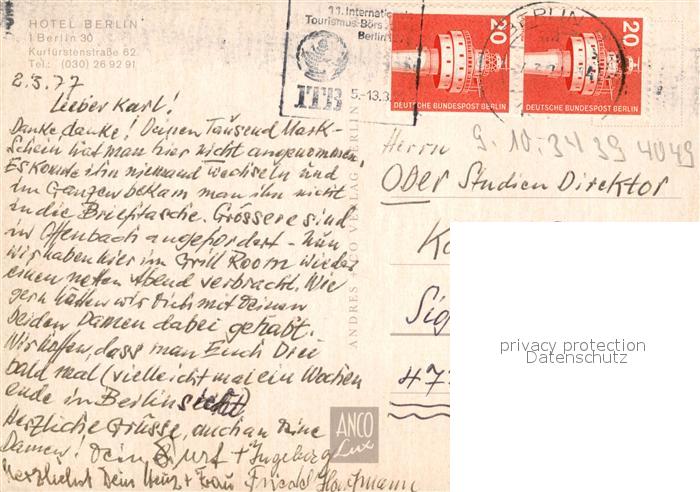 HOTEL BERLIN
1 Berlin 30
Kurfürstenstraße 62
Tel.: (030) 26 92 91
11. Internationale
Tourismus-Börse
Berlin
ITB
5.-13.3.
BERLIN
20
DEUTSCHE BUNDESPOST BERLIN
20
DEUTSCHE BUNDESPOST BERLIN
2.3.77
Lieber Karl!
Danke, danke! Deinen Tausend Mark-
Schein hat man hier nicht angenommen,
Es konnte ihn niemand wechseln und
im Ganzen bekam man ihn nicht
in die Brieftasche. Grössere sind
in Offenbach angefordert - Nun
wir haben hier im Grill Room wieder
einen netten Abend verbracht. Wie
gern hätten wir Dich mit Deinen
beiden Damen dabei gehabt.
Wir hoffen, dass man Euch Drei
bald mal (vielleicht mal ein Wochen
ende in Berlin sieht)
Herzliche Grüsse, auch an Deine
Damen! Dein Kurt + Ingeborg
Herzlichst Dein Heinz + Frau Friedel
ANDRES + CO VERLAG BERLIN
ANCO
Lux
9. 10. 34 39 4049
Herrn
ODer Studien Direktor
Ka
Sig
473
privacy protection
Datenschutz